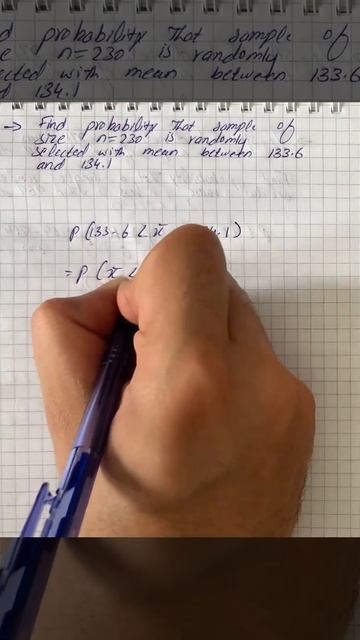 d probability that sample of
ze n=230 is randomly
ected with mean between 133.6
d 134.1
→ Find probability that sample of
size n=230 is randomly
selected with mean between 133.6
and 134.1
P(133.6 < x̄ .1)
= P(x̄ <